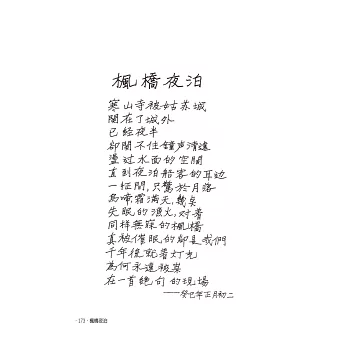 楓橋夜泊
寒山寺被姑苏城
關在了城外
已經夜半
卻關不住鐘声清遠
盪过水面的空間
直到夜泊船客的耳边
一怔間,只驚於月落
烏啼霜滿天,幾矣
失眠的漁火,对著
同样無寐的楓橋
真被催眠的卻是我們
千年後就着灯光
為何永遠被棄
在一首绝句的現場
——癸巳年正月初二
· 173 · 楓橋夜泊